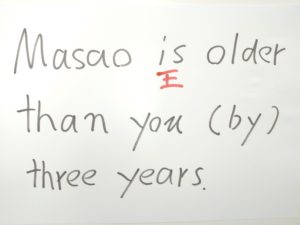 Masao is older
王
than you (by)
three years.